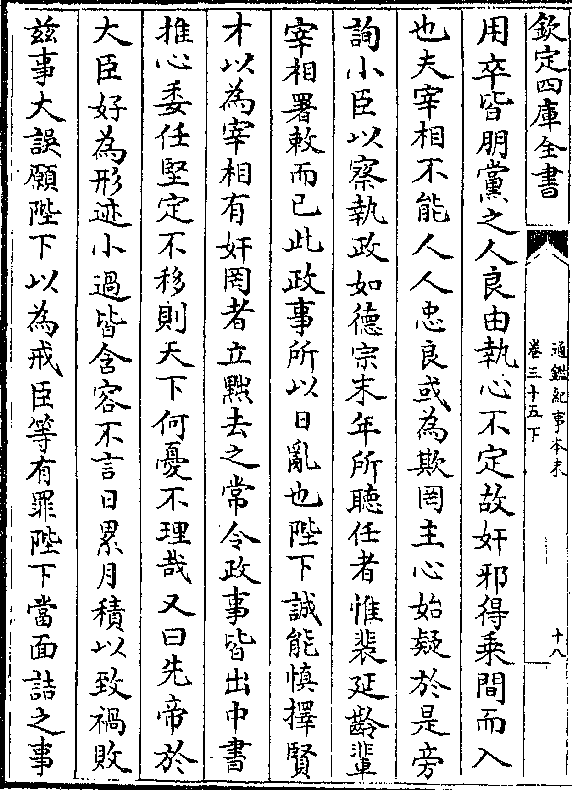 欽定四庫全書
通鑑紀事本末
卷三十五下
十八
用卒皆朋黨之人良由執心不定故奸邪得乗間而入
也夫宰相不能人人忠良或為欺罔主心始疑於是旁
詢小臣以察執政如德宗末年所聽任者惟裴延齡輩
宰相署敕而已此政事所以日亂也陛下誠能慎擇賢
才以為宰相有奸罔者立黜去之常令政事皆出中書
推心委任堅定不移則天下何憂不理哉又曰先帝於
大臣好為形迹小過皆含容不言日累月積以致禍敗
兹事大誤願陛下以為戒臣等有罪陛下當面詰之事